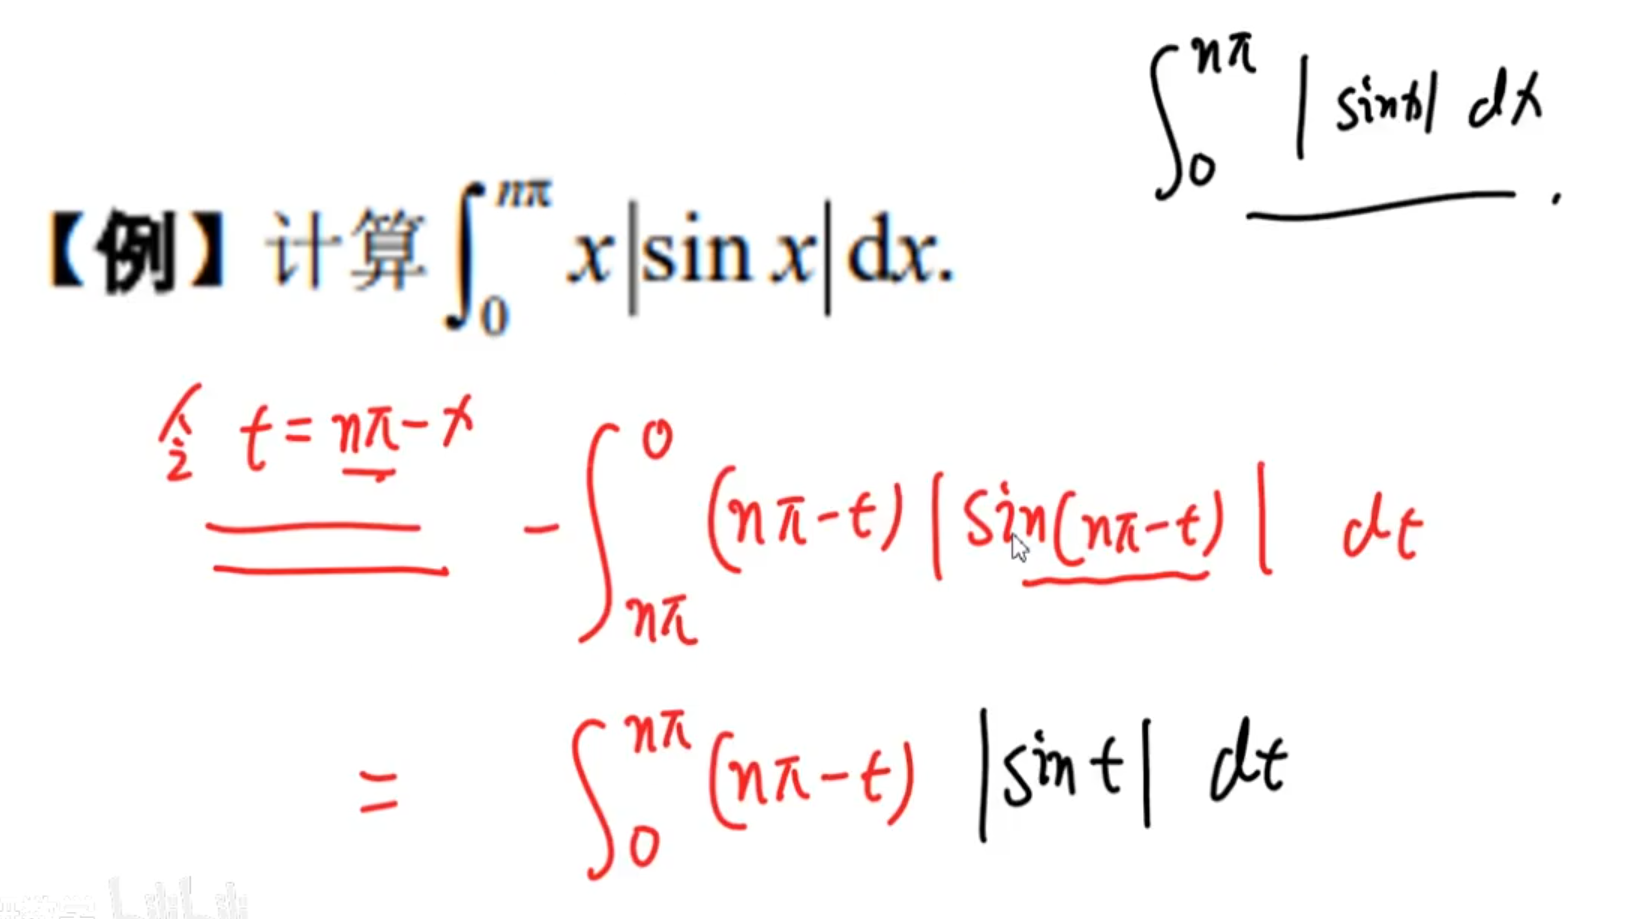 ∫₀^{nπ} |sinx| dx.
【例】计算∫₀^{nπ} x|sin x|dx.
令 t = nπ - x
- ∫_{nπ}^{0} (nπ-t) |sin(nπ-t)| dt
= ∫₀^{nπ} (nπ-t) |sint| dt